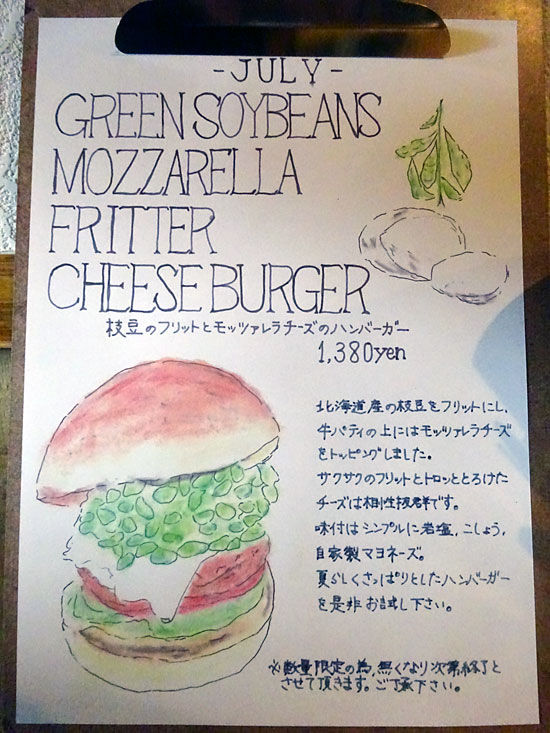 -JULY-
GREEN SOYBEANS
MOZZARELLA
FRITTER
CHEESE BURGER
枝豆のフリットとモッツァレラチーズのハンバーガー
1,380yen
北海道産の枝豆をフリットにし、
牛パティの上にはモッツァレラチーズ
をトッピングしました。
サクサクのフリットとトロッととろけた
チーズは相性抜群です。
味付はシンプルに岩塩、こしょう、
自家製マヨネーズ。
夏らしくさっぱりとしたハンバーガー
を是非お試し下さい。
※数量限定の為、無くなり次第終了と
させて頂きます。ご了承下さい。